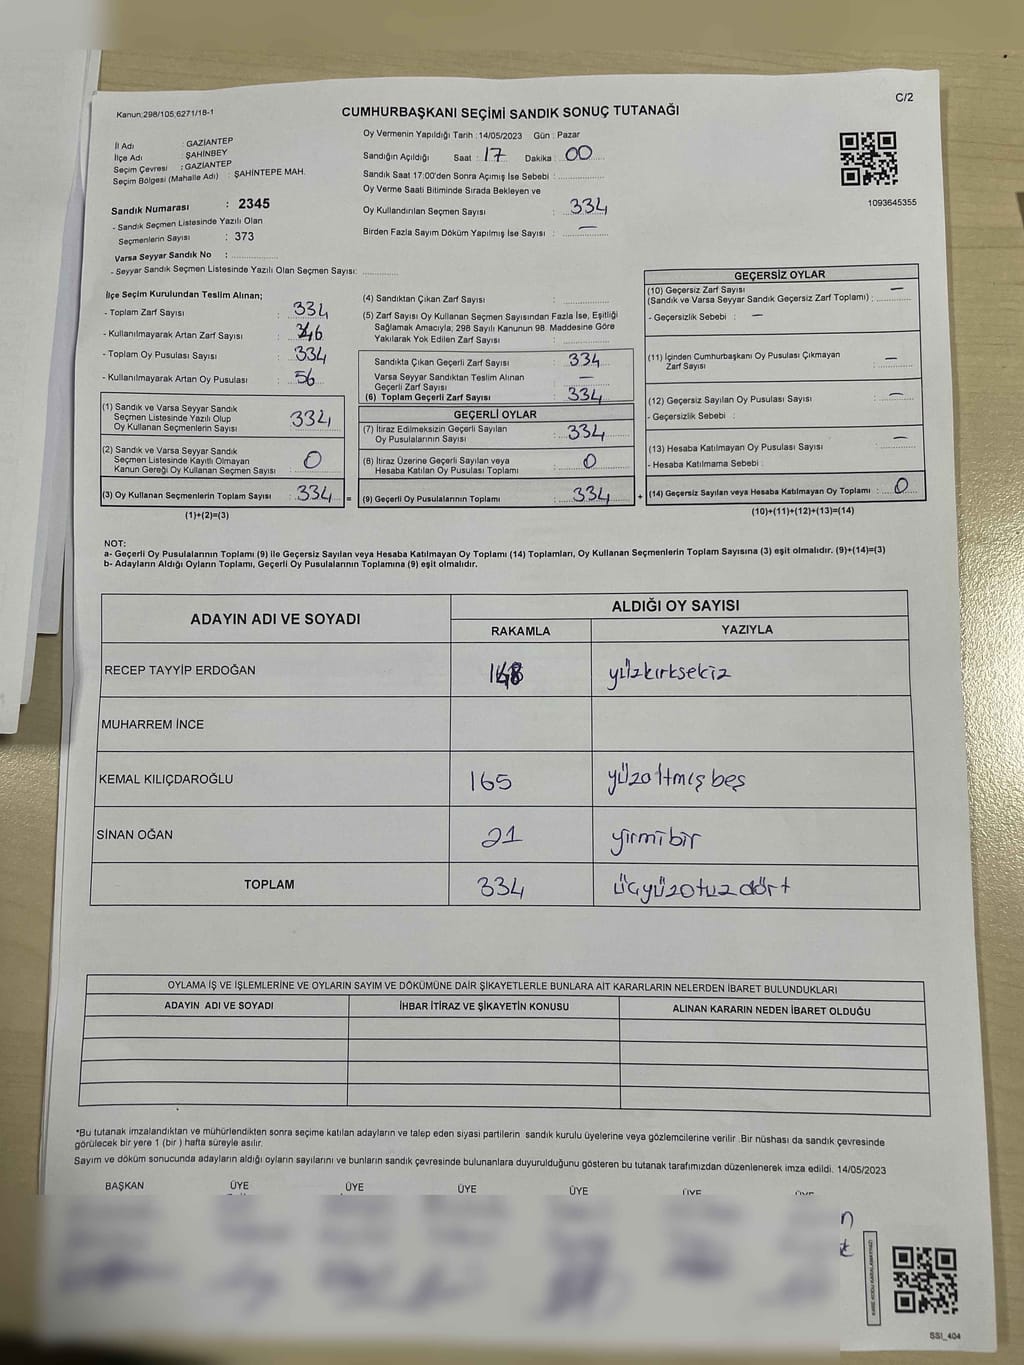 Kanun:298/105,6271/18-1
CUMHURBAŞKANI SEÇİMİ SANDIK SONUÇ TUTANAĞI
C/2
İl Adı : GAZİANTEP
İlçe Adı : ŞAHİNBEY
Seçim Çevresi : GAZİANTEP
Seçim Bölgesi (Mahalle Adı) : ŞAHİNTEPE MAH.
Sandık Numarası : 2345
- Sandık Seçmen Listesinde Yazılı Olan
Seçmenlerin Sayısı : 373
Varsa Seyyar Sandık No :
- Seyyar Sandık Seçmen Listesinde Yazılı Olan Seçmen Sayısı:
Oy Vermenin Yapıldığı Tarih : 14/05/2023 Gün : Pazar
Sandığın Açıldığı Saat : 17 Dakika : 00
Sandık Saat 17:00'den Sonra Açımış İse Sebebi :
Oy Verme Saati Bitiminde Sırada Bekleyen ve
Oy Kullandırılan Seçmen Sayısı : 334
Birden Fazla Sayım Döküm Yapılmış İse Sayısı : —
1093645355
İlçe Seçim Kurulundan Teslim Alınan;
- Toplam Zarf Sayısı : 334
- Kullanılmayarak Artan Zarf Sayısı : 46
- Toplam Oy Pusulası Sayısı : 334
- Kullanılmayarak Artan Oy Pusulası : 56
(1) Sandık ve Varsa Seyyar Sandık
Seçmen Listesinde Yazılı Olup
Oy Kullanan Seçmenlerin Sayısı : 334
(2) Sandık ve Varsa Seyyar Sandık
Seçmen Listesinde Kayıtlı Olmayan
Kanun Gereği Oy Kullanan Seçmen Sayısı : 0
(3) Oy Kullanan Seçmenlerin Toplam Sayısı : 334 =
(1)+(2)=(3)
(4) Sandıktan Çıkan Zarf Sayısı :
(5) Zarf Sayısı Oy Kullanan Seçmen Sayısından Fazla İse, Eşitliği
Sağlamak Amacıyla; 298 Sayılı Kanunun 98. Maddesine Göre
Yakılarak Yok Edilen Zarf Sayısı :
Sandıkta Çıkan Geçerli Zarf Sayısı : 334
Varsa Seyyar Sandıktan Teslim Alınan
Geçerli Zarf Sayısı : —
(6) Toplam Geçerli Zarf Sayısı : 334
GEÇERLİ OYLAR
(7) İtiraz Edilmeksizin Geçerli Sayılan
Oy Pusulalarının Sayısı : 334
(8) İtiraz Üzerine Geçerli Sayılan veya
Hesaba Katılan Oy Pusulası Toplamı : 0
(9) Geçerli Oy Pusulalarının Toplamı : 334 +
GEÇERSİZ OYLAR
(10) Geçersiz Zarf Sayısı —
(Sandık ve Varsa Seyyar Sandık Geçersiz Zarf Toplamı) :
- Geçersizlik Sebebi : —
(11) İçinden Cumhurbaşkanı Oy Pusulası Çıkmayan
Zarf Sayısı : —
(12) Geçersiz Sayılan Oy Pusulası Sayısı : —
- Geçersizlik Sebebi :
(13) Hesaba Katılmayan Oy Pusulası Sayısı : —
- Hesaba Katılmama Sebebi :
(14) Geçersiz Sayılan veya Hesaba Katılmayan Oy Toplamı : 0
(10)+(11)+(12)+(13)=(14)
NOT:
a- Geçerli Oy Pusulalarının Toplamı (9) ile Geçersiz Sayılan veya Hesaba Katılmayan Oy Toplamı (14) Toplamları, Oy Kullanan Seçmenlerin Toplam Sayısına (3) eşit olmalıdır. (9)+(14)=(3)
b- Adayların Aldığı Oyların Toplamı, Geçerli Oy Pusulalarının Toplamına (9) eşit olmalıdır.
ADAYIN ADI VE SOYADI
ALDIĞI OY SAYISI
RAKAMLA YAZIYLA
RECEP TAYYİP ERDOĞAN 148 yüzkırksekiz
MUHARREM İNCE
KEMAL KILIÇDAROĞLU 165 yüzaltmışbeş
SİNAN OĞAN 21 yirmibir
TOPLAM 334 üçyüzotuzdört
OYLAMA İŞ VE İŞLEMLERİNE VE OYLARIN SAYIM VE DÖKÜMÜNE DAİR ŞİKAYETLERLE BUNLARA AİT KARARLARIN NELERDEN İBARET BULUNDUKLARI
ADAYIN ADI VE SOYADI İHBAR İTİRAZ VE ŞİKAYETİN KONUSU ALINAN KARARIN NEDEN İBARET OLDUĞU
*Bu tutanak imzalandıktan ve mühürlendikten sonra seçime katılan adayların ve talep eden siyasi partilerin sandık kurulu üyelerine veya gözlemcilerine verilir .Bir nüshası da sandık çevresinde
görülecek bir yere 1 (bir ) hafta süreyle asılır.
Sayım ve döküm sonucunda adayların aldığı oyların sayılarını ve bunların sandık çevresinde bulunanlara duyurulduğunu gösteren bu tutanak tarafımızdan düzenlenerek imza edildi. 14/05/2023
BAŞKAN ÜYE ÜYE ÜYE ÜYE ÜYE ÜYE
SSI_404